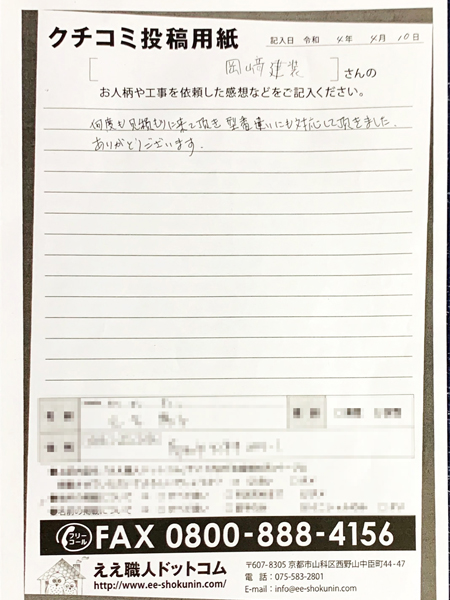 クチコミ投稿用紙
記入日 令和 4年 4月 10日
[ 岡﨑建装 ] さんの
お人柄や工事を依頼した感想などをご記入ください。
何度も見積もりに来て頂き 型番違いにも対応して頂きました。
ありがとうございます。
フリーコール FAX 0800-888-4156
ええ職人ドットコム
http://www.ee-shokunin.com
〒607-8305 京都市山科区西野山中臣町44-47
電話：075-583-2801
E-mail：info@ee-shokunin.com